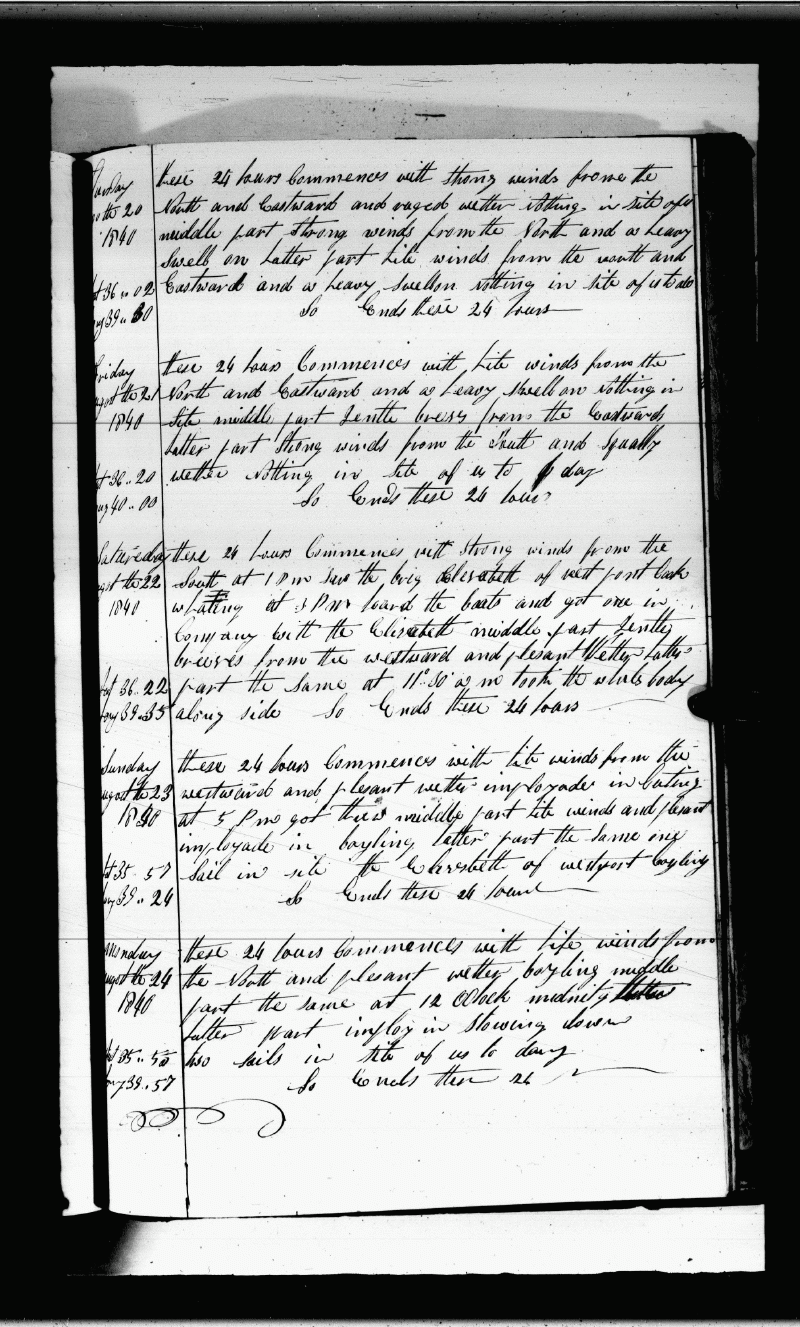 these 24 hours Commences with strong winds from the
North and Eastward and ruged wether notting in site of us
middle part strong winds from the North and a heavy
Swell on Latter part Lite winds from the north and
Eastward and a heavy swell on notting in site of us to day
So Ends these 24 hours
the 20
1840
36 .. 02
39 .. 30
these 24 hours Commences with Lite winds from the
North and Eastward and a heavy swell on notting in
Site middle part Jentle breesy from the Eastward
Latter part strong winds from the South and Squally
wether notting in site of us to day
So Ends these 24 hours
Friday
agost the 21
1840
36 .. 20
40 .. 00
these 24 hours Commences with strong winds from the
South at 1 PM Saw the brig Elezebeth of west port
whaling at 3 PM the boats and got one in
Company with the Elisebeth middle part Jentle
breeses from the westward and plesant Wether Latter
part the same at 11 30 a m took the whole body
along side So Ends these 24 hours
Satureday
agost the 22
1840
36 .. 22
39 .. 35
these 24 hours Commences with Lite winds from the
westward and plesant wether imployade in Cuting
at 5 PM got threw middle part Lite winds and plesant
imployade in boyling latter part the same one
Sail in site the Elezebeth of westport boyling
So Ends these 24 hours
Sunday
agost the 23
1840
35 .. 57
39 .. 24
these 24 hours Commences with Lite winds from
the North and plesant wether boyling middle
part the same at 12 Oclock midnite
Latter part imploy in Stowing down
two sails in site of us to day
So Ends these 24
agost the 24
1840
35 .. 55
39 .. 57